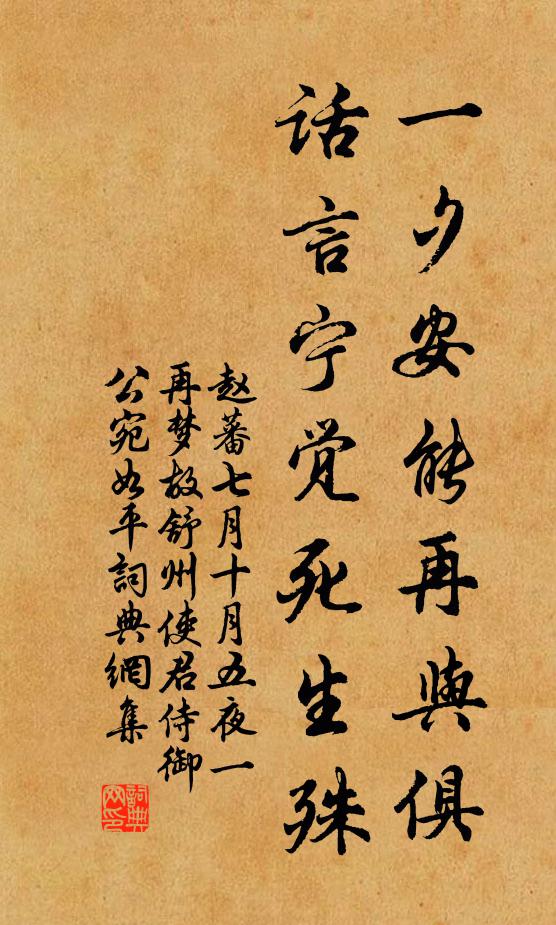 一夕安能再與俱
话言宁觉死生殊
赵蕃七月十月五夜一
再梦故舒州使君侍御
公宛如平詞典網集
詞典網印